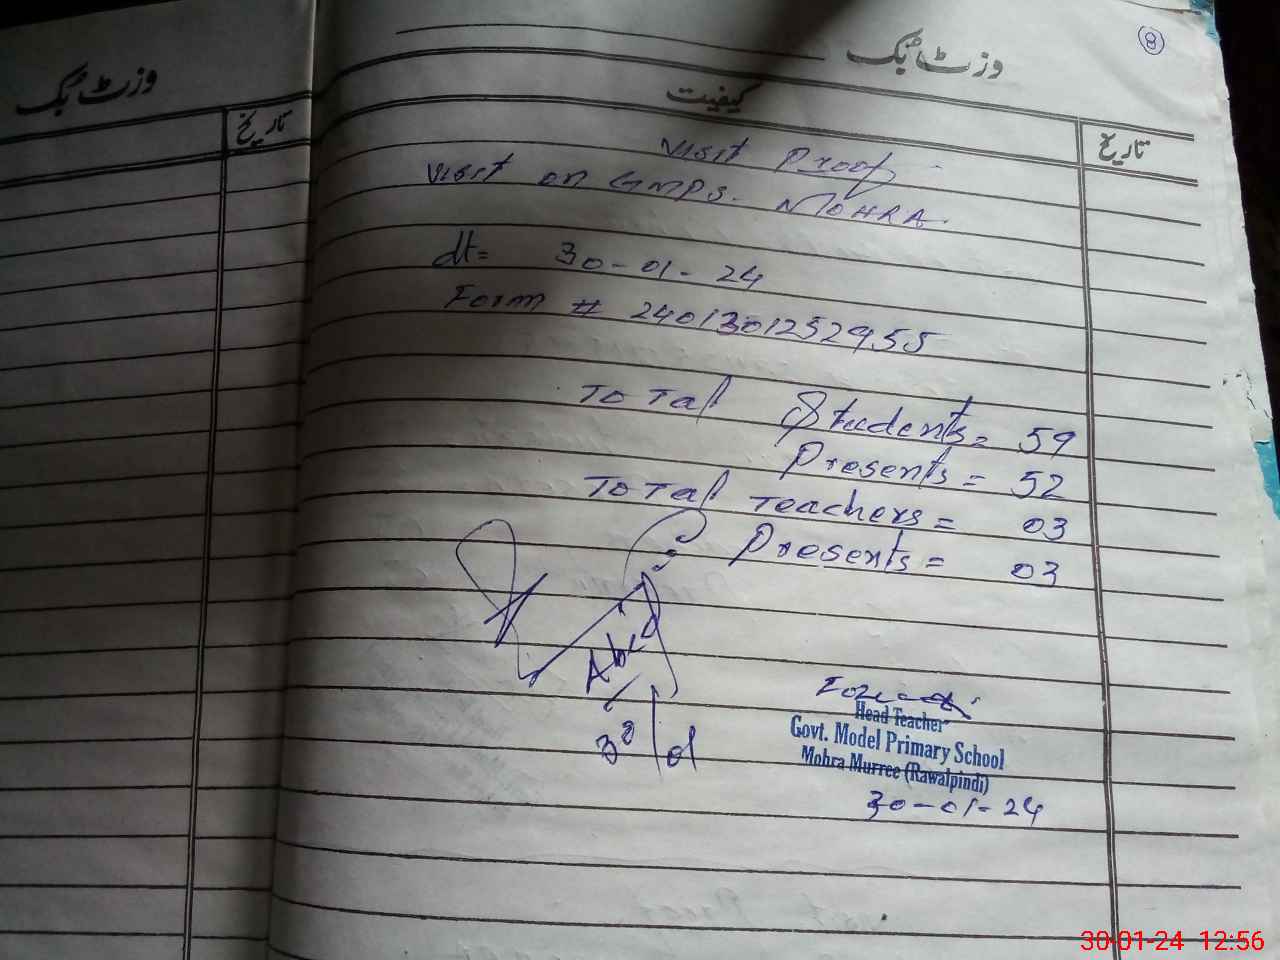 وزٹ بک
تاریخ
8
وزٹ بک
کیفیت
تاریخ
Visit Proof
Visit on GMPS. MOHRA.
dt= 30-01-24
Form # 240130125295S
Total Students= 59
Presents= 52
Total Teachers= 03
Presents= 03
30/01
Head Teacher
Govt. Model Primary School
Mohra Murree (Rawalpindi)
30-01-24
30-01-24 12:56